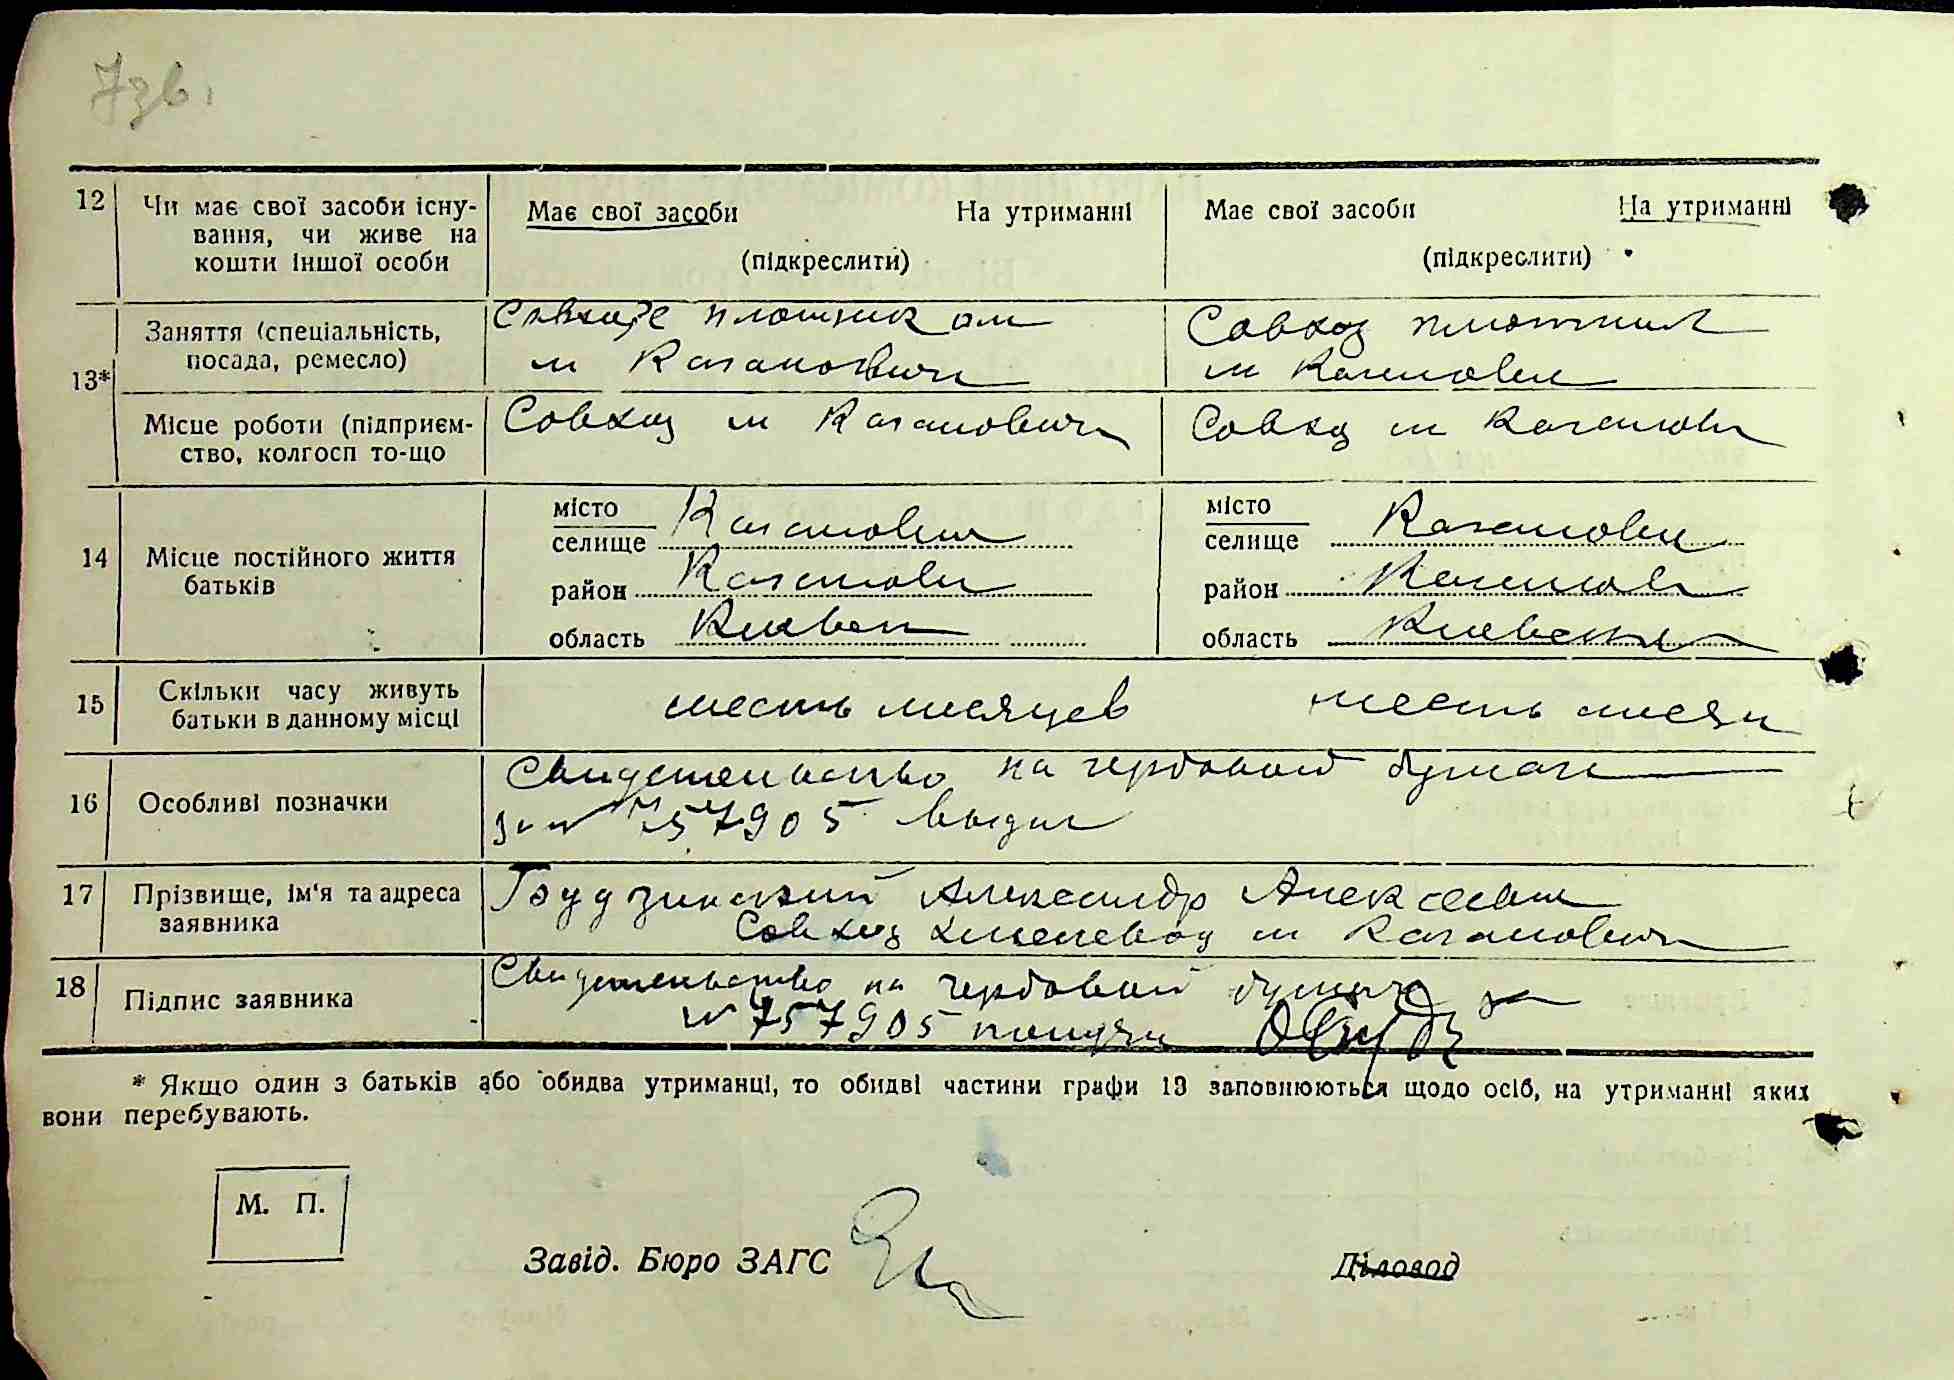 7зв.
12 Чи має свої засоби існу-
вання, чи живе на
кошти іншої особи
Має свої засоби На утриманні
(підкреслити)
Має свої засоби На утриманні
(підкреслити)
13*
Заняття (спеціальність,
посада, ремесло)
Совхозе плотником
м Каганович
Совхоз плотник
м Каганович
Місце роботи (підприєм-
ство, колгосп то-що
Совхоз м Каганович
Совхоз м Каганович
14 Місце постійного життя
батьків
місто
селище Каганович
район Каганович
область Киевск
місто
селище Каганович
район Каганович
область Киевск
15 Скільки часу живуть
батьки в данному місці
шесть месяцев шесть месяц
16 Особливі позначки
Свидетельство на гербовой бумаге
за № 757905 выдан
17 Прізвище, ім'я та адреса
заявника
Будзинский Александр Алексеевич
Совхоз м Каганович
18 Підпис заявника
Свидетельство на гербовой бумаге за
№ 757905 получил
* Якщо один з батьків або обидва утриманці, то обидві частини графи 13 заповнюються щодо осіб, на утриманні яких
вони перебувають.
М. П.
Завід. Бюро ЗАГС Діловод